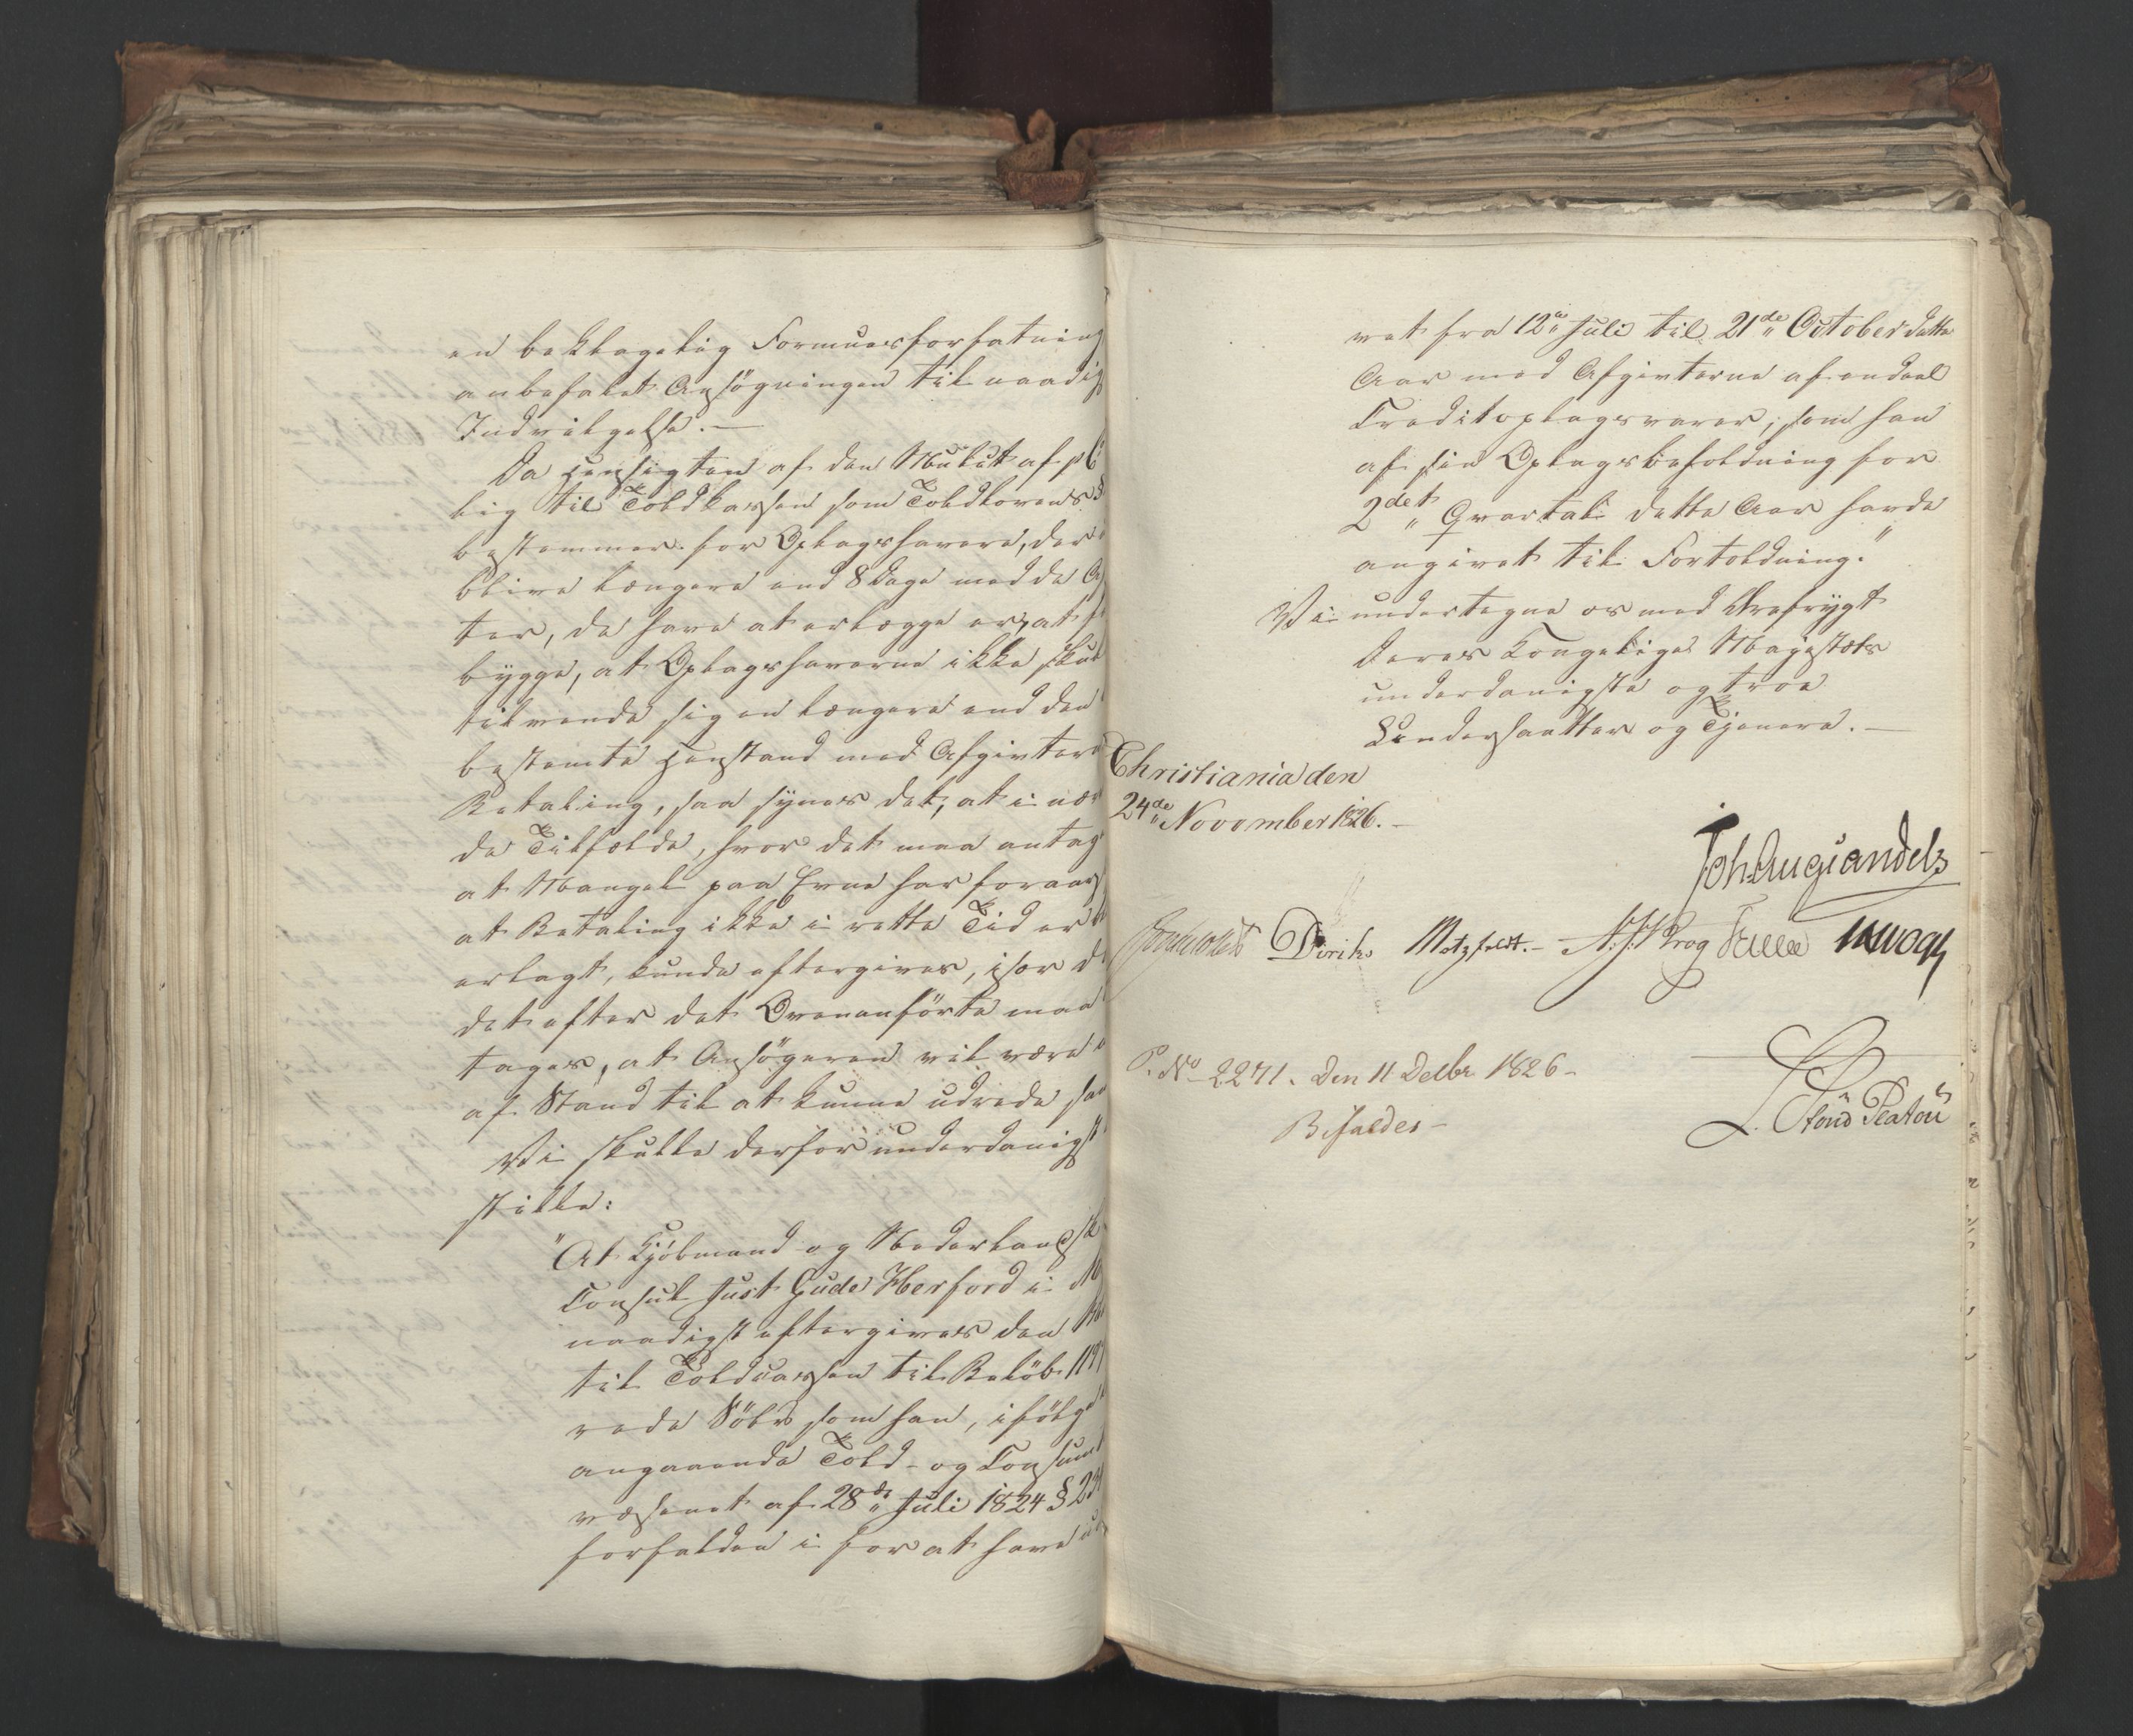 en beklagelig Formuesforfatning
anbefalet Ansögningen til naadigst
Indvilgelse. —
Da Hensigten af den Mulct af
lig til Toldkassen som Toldlovens §
bestemmer for Oplagshavere, der
blive længere end 8 Dage med de
ter, de have at erlægge er, at
bygge, at Oplagshaverne ikke skul
tilvende sig en længere end den
bestemte Henstand med Afgivternes
Betaling, saa synes det, at i nær
de Tilfælde, hvor det maa antages
at Mangel paa Evne har foraarsaget
at Betaling ikke i rette Tid er
erlagt, kunde eftergives, især da
det efter det Ovenanförte maa
tages, at Ansögeren vil være
af Stand til at kunne udrede
Vi skulle derfor underdanigst
stille:
"At Kjöbmand og Nederlandsk
Consul Just Gude Herford i
naadigst eftergives den
til Toldcassen til Belöb
rede Sölv som han, ifölge
angaaende Told- og Consum
væsenet af 28de Juli 1824 §
forfalden i for at have
vet fra 12te Juli til 21de October dette
Aar med Afgivterne af endeel
Creditoplagsvarer, som han
af sin Oplagsbeholdning for
2det Qvartal dette Aar havde
angivet til Fortoldning."
Vi undertegne os med Ærefrygt
Deres Kongelige Majestæts
underdanigste og troe
Undersaatter og Tjenere. —
Christiania den
24de November 1826. –
Joh Aug Sandels
Diriks Motzfeldt. – Krog
P. No 2271. Den 11 Decbr 1826 –
Bifaldes –